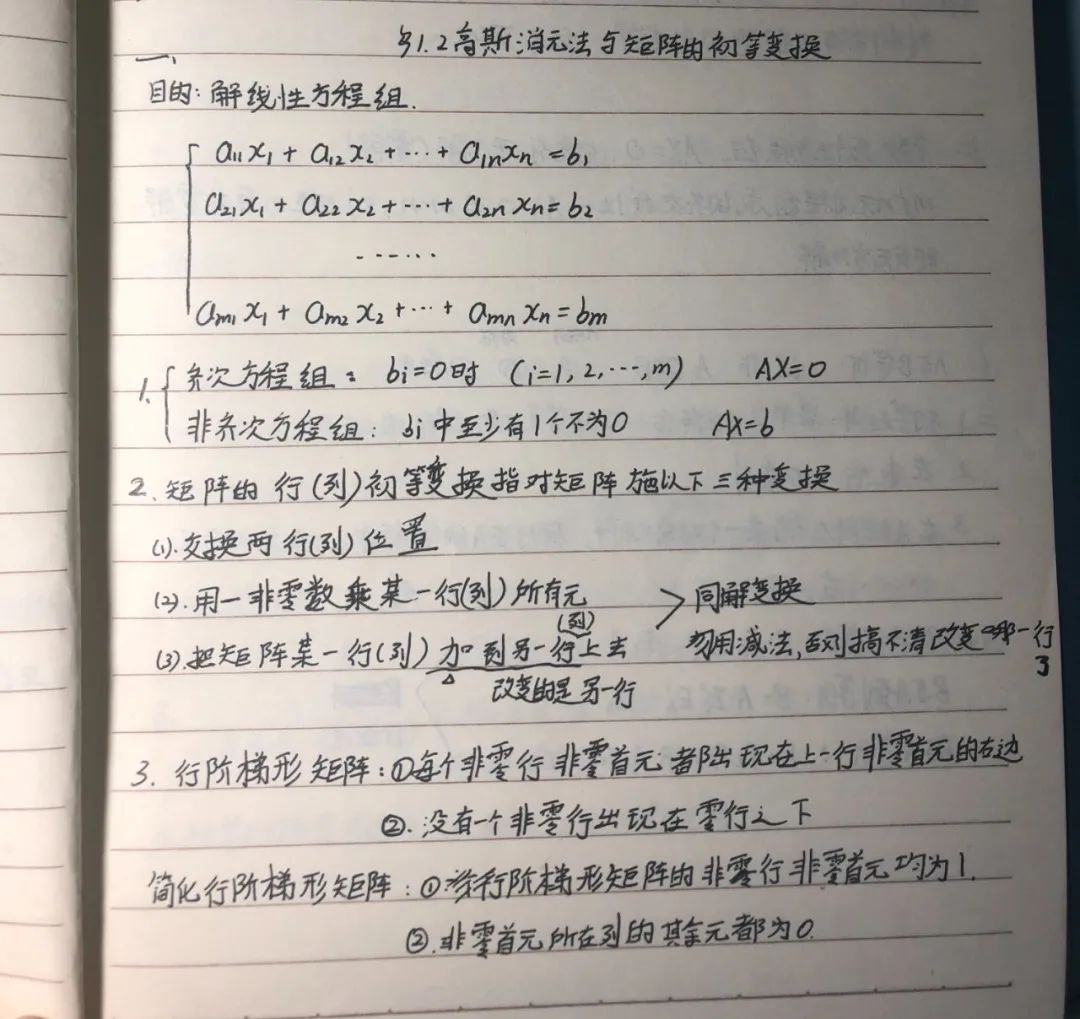 §1.2高斯消元法与矩阵的初等变换
一、
目的:解线性方程组.
a₁₁x₁ + a₁₂x₂ + ⋯ + a₁ₙxₙ = b₁
a₂₁x₁ + a₂₂x₂ + ⋯ + a₂ₙxₙ = b₂
⋯⋯
aₘ₁x₁ + aₘ₂x₂ + ⋯ + aₘₙxₙ = bₘ
1. 齐次方程组: bi=0时 (i=1, 2, ⋯, m) AX=0
非齐次方程组: bi中至少有1个不为0 AX=b
2. 矩阵的行(列)初等变换指对矩阵施以下三种变换
(1).交换两行(列)位置
(2).用一非零数乘某一行(列)所有元 > 同解变换
(3).把矩阵某一行(列)加到另一行(列)上去 勿用减法,否则搞不清改变哪一行了
改变的是另一行
3. 行阶梯形矩阵:①每个非零行非零首元都出现在上一行非零首元的右边
②.没有一个非零行出现在零行之下
简化行阶梯形矩阵:①行阶梯形矩阵的非零行非零首元均为1.
②.非零首元所在列的其余元都为0.